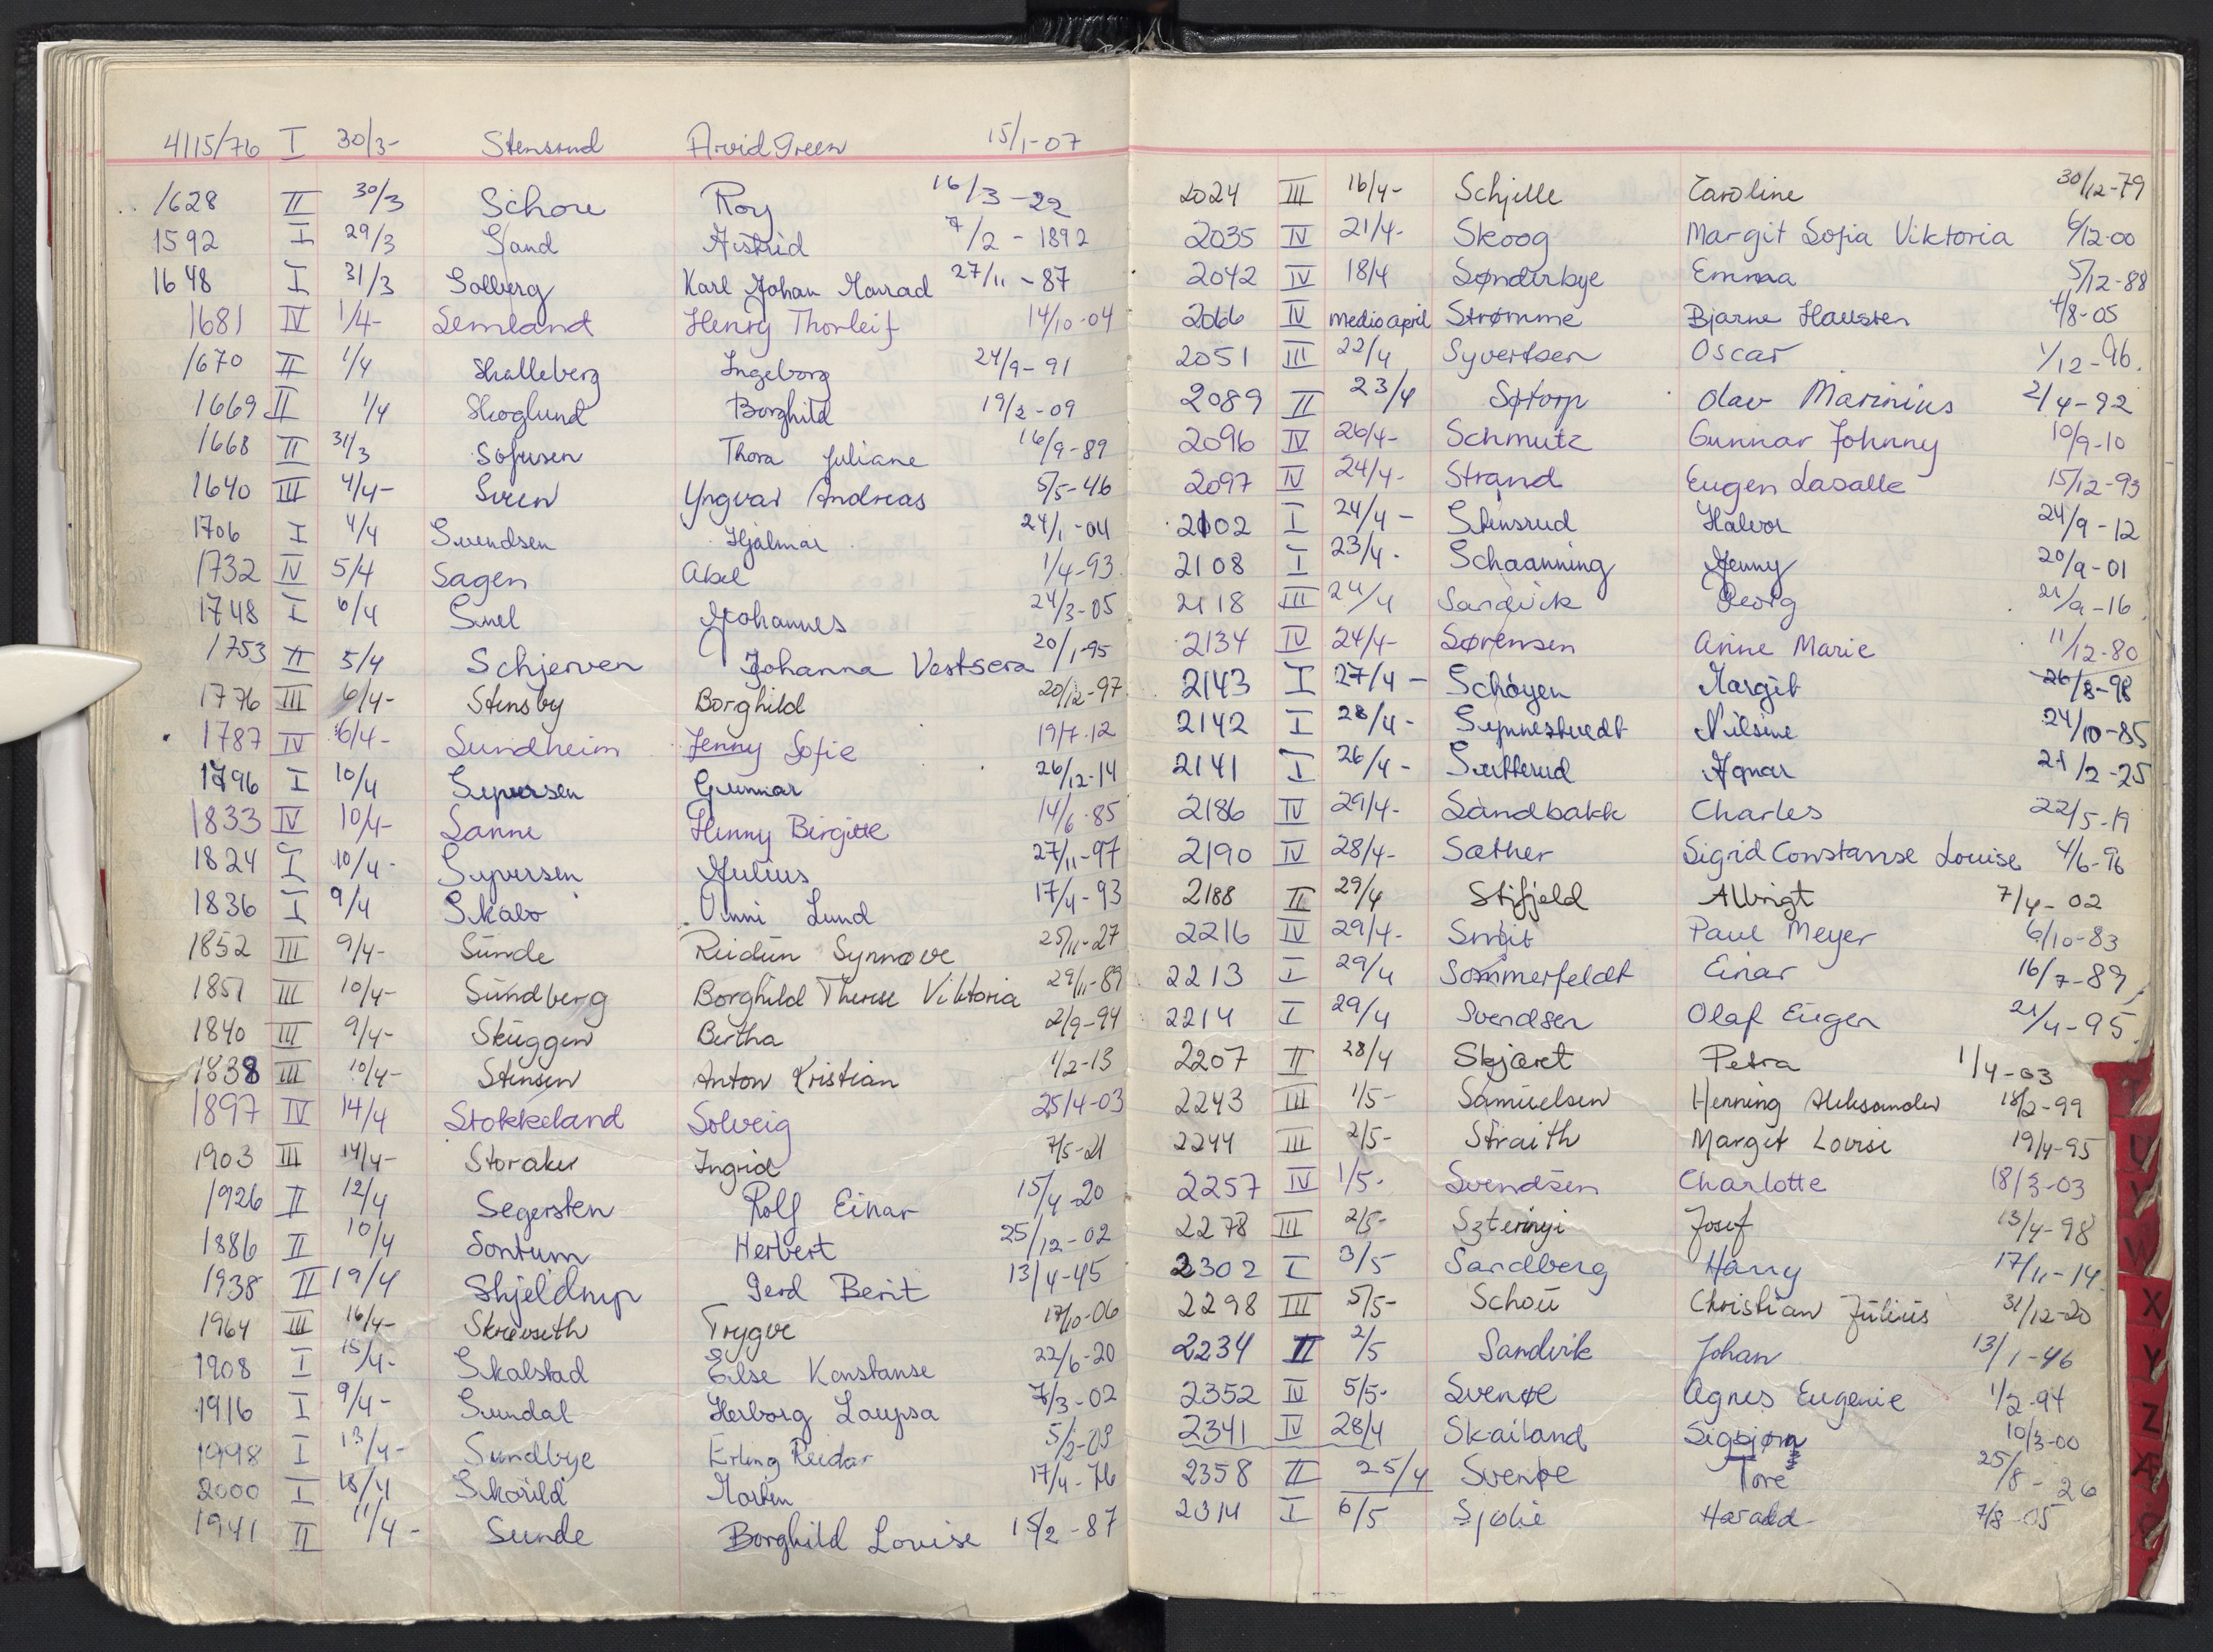 4115/76 I 30/3- Stensrud Arvid Green 15/1-07
1628 II 30/3 Schou Roy 16/3-22
1592 I 29/3 Sand Astrid 7/2-1892
1648 I 31/3 Solberg Karl Johan Konrad 27/11-87
1681 IV 1/4- Semland Henry Thorleif 14/10-04
1670 II 1/4 Skalleberg Ingeborg 24/9-91
1669 II 1/4 Skoglund Borghild 19/2-09
1668 II 31/3 Sofusen Thora Juliane 16/9-89
1640 III 4/4- Sveen Yngvar Andreas 5/5-46
1706 I 4/4 Svendsen Hjalmar 24/1-04
1732 IV 5/4 Sagen Abel 1/4-93
1748 I 6/4 Johannes 24/3-05
1753 II 5/4 Schjerven Johanna Vestsera 20/1-95
1776 III 6/4- Stensby Borghild 20/12-97
1787 IV 6/4- Sundheim Jenny Sofie 19/7-12
1796 I 10/4 Syversen Gunnar 26/12-14
1833 IV 10/4- Sanne Henny Birgitte 14/6-85
1824 I 10/4- Syversen Julius 27/11-97
1836 I 9/4 Skabo Unni Lund 17/4-93
1852 III 9/4- Sunde Reidun Synnøve 25/11-27
1851 III 10/4- Sundberg Borghild Therese Viktoria 29/11-89
1840 III 9/4- Stuggen Bertha 2/9-94
1838 III 10/4- Stensen Anton Kristian 1/2-13
1897 IV 14/4 Stokkeland Solveig 25/4-03
1903 III 14/4- Storaker Ingrid 7/5-21
1926 II 12/4 Segersten Rolf Einar 15/4-20
1886 II 10/4 Sontum Herbert 25/12-02
1938 II 19/4 Skjeldrup Gerd Berit 13/4-45
1964 III 16/4- Skreiseth Trygve 17/10-06
1908 I 15/4- Skalstad Else Konstanse 22/6-20
1916 I 9/4- Sundal Herborg Laupsa 7/3-02
1998 I 13/4- Sundbye Erling Reidar 5/2-03
2000 I 18/4 Skarild Martin 17/4-76
1941 II 11/4- Sunde Borghild Louise 15/2-87
2024 III 16/4- Schjelle Caroline 30/12-79
2035 IV 21/4- Skoog Margit Sofia Viktoria 6/12-00
2042 IV 18/4 Sønderbye Emma 5/12-88
2066 IV medio april Strømme Bjarne Hausten 4/8-05
2051 III 22/4 Syvertsen Oscar 1/12-96.
2089 II 23/4 Søtorp Olav Marinius 2/4-92
2096 IV 26/4- Schmutz Gunnar Johnny 10/9-10
2097 IV 24/4- Strand Eugen Lasalle 15/12-93
2102 I 24/4- Stensrud Halvor 24/9-12
2108 I 23/4- Schaanning Jenny 20/9-01
2118 III 24/4 Sandvik Georg 21/9-16
2134 IV 24/4- Sørensen Anne Marie 11/12-80
2143 I 27/4- Schøyen Margit 26/8-98
2142 I 28/4- Synnestvedt Nilsine 24/10-85
2141 I 26/4- Sætterud Agnar 21/2-25
2186 IV 29/4- Sandbakk Charles 22/5-19
2190 IV 28/4- Sæther Sigrid Constanse Louise 4/6-96
2188 II 29/4 Stifjeld Albrigt 7/4-02
2216 IV 29/4- Smit Paul Meyer 6/10-83
2213 I 29/4 Sommerfeldt Einar 16/7-89
2214 I 29/4 Svendsen Olaf Eugen 21/4-95
2207 II 28/4 Skjæret Petra 1/4-03
2243 III 1/5- Samuelsen Henning Aleksander 18/2-99
2244 III 2/5- Straith Margit Lovise 19/4-95
2257 IV 1/5- Svendsen Charlotte 18/3-03
2278 III 2/5- Szterinyi Josef 13/4-98
2302 I 3/5 Sandberg Harry 17/11-14
2298 III 5/5- Schou Christian Julius 31/12-20
2234 II 2/5 Sandvik Johan 13/1-46
2352 IV 5/5- Svenøe Agnes Eugenie 1/2-94
2341 IV 28/4 Skailand Sigbjørn 10/3-00
2358 II 25/4 Svenøe Tore 25/8-26
2314 I 6/5 Sjølie Harald 7/8-05
U
V
W
X
Y
Z
Æ